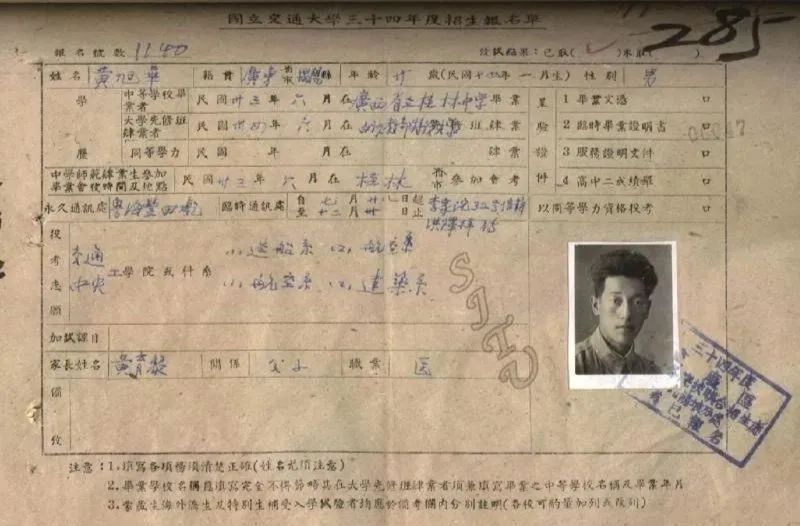 國立交通大學三十四年度招生報名單
285
報名號數 1140 考試結果:已取(✓)未取( )
姓名 黃旭華 籍貫 廣東省市揭陽縣 年齡 廿 歲(民國十五年一月生) 性別 男
學歷 中等學校畢業者 民國卅三年六月在廣西省立桂林中學畢業 呈驗證件 1 畢業文憑 口
大學先修班肄業者 民國卅四年六月在 班肄業 2 臨時畢業證明書 口
同等學力 民國 年 月在 肄業 3 服務證明文件 口
中學師範肄業生參加畢業會攷時間及地點 民國卅三年六月在桂林省市參加會考 4 高中二成績單 口
永久通訊處 粵海豐田墘 臨時通訊處 自七月廿八日起至十二月卅日止 以同等學力資格投考 口
投考志願 交通 中央 工學院或科系
(1)造船系 (2)航空系
(1)航空系 (2)建築系
SJTU
加試課目
家長姓名 黃育黎 關係 父子 職業 醫
備攷
三十四年度
注意:1.填寫各項務須清楚正確(姓名尤須注意)
2.畢業學校名稱應填寫完全不得節略其在大學先修班肄業者須兼填寫畢業之中等學校名稱及畢業年月
3.蒙藏生海外僑生及特別生補受入學試驗者均應於備考欄內分別註明(各校可酌量加列或改列)